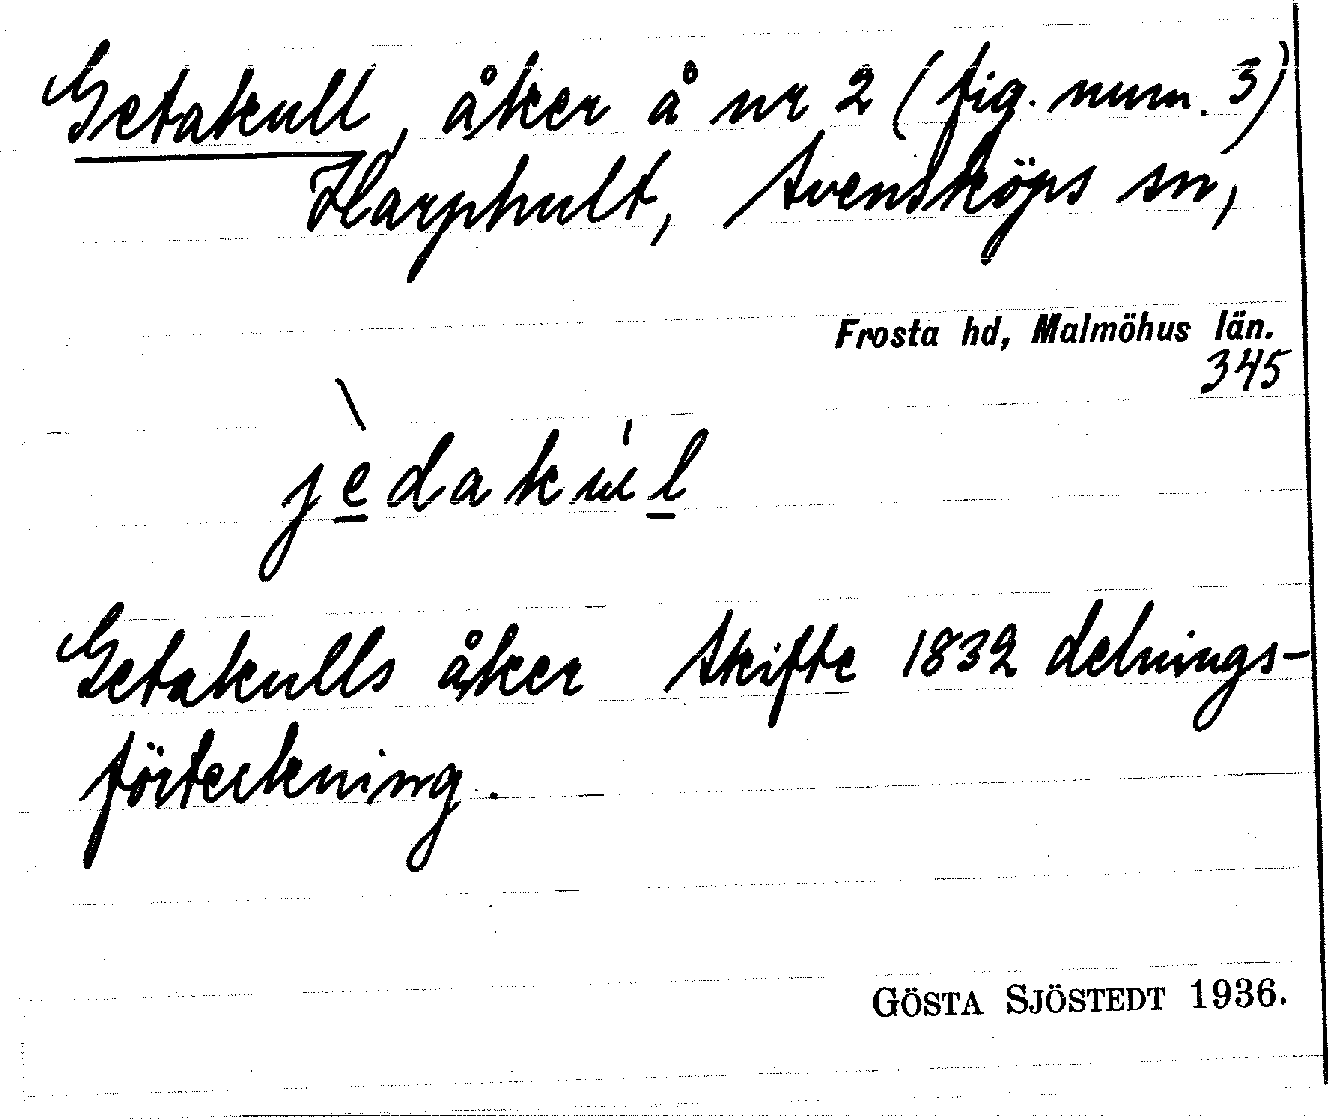 Getakull, åker å nr 2 (fig. num. 3)
Harphult, Svensköps sn,
Frosta hd, Malmöhus län.
345
jèdakúl
Getakulls åker Skifte 1832 delnings-
förteckning.
GÖSTA SJÖSTEDT 1936.